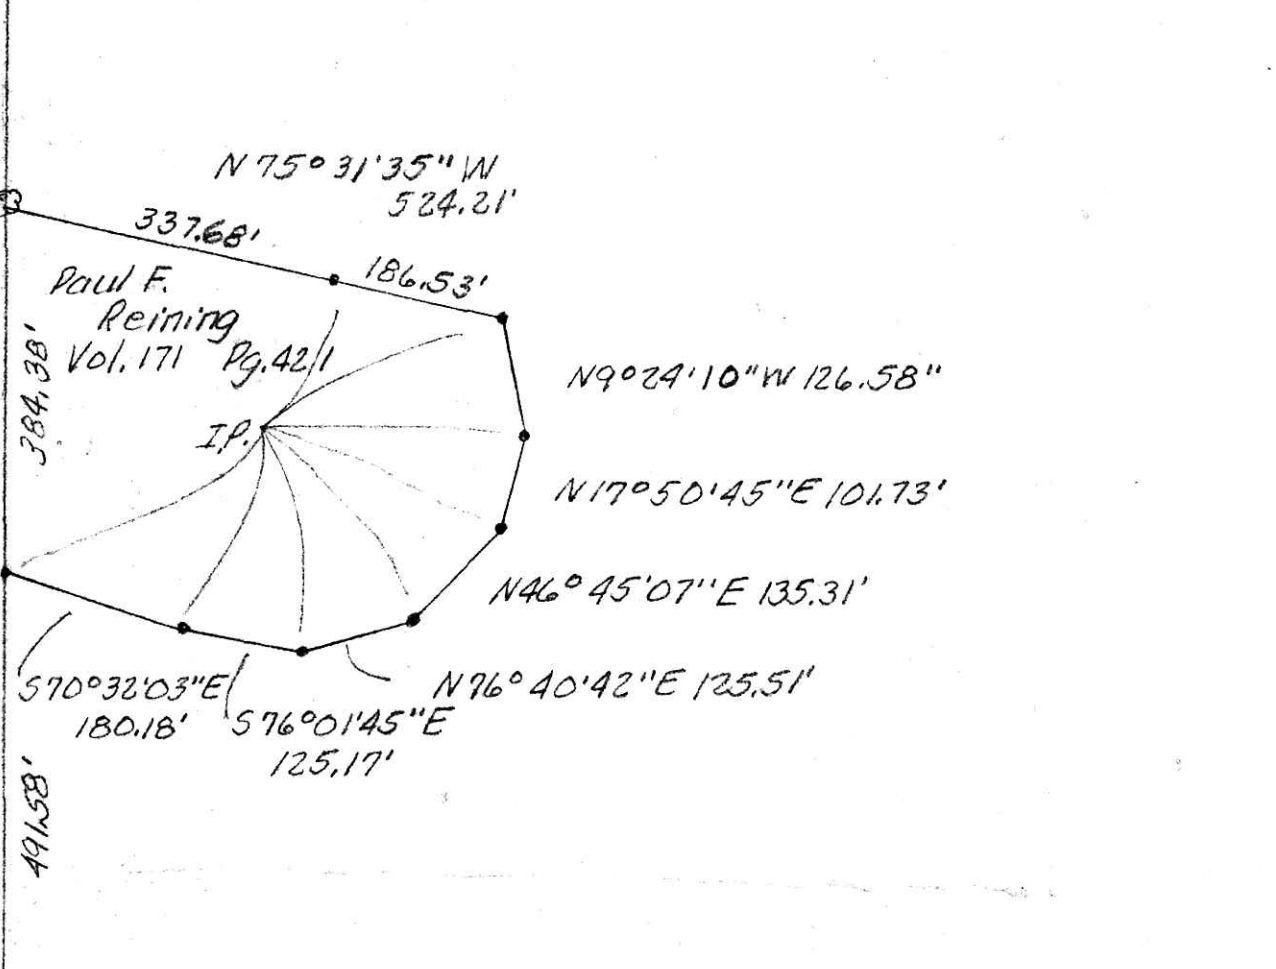 N 75° 31' 35" W
524.21'
337.68'
186.53'
Paul F.
Reining
Vol. 171 Pg. 421
384.38'
I.P.
N9° 24' 10" W 126.58"
N17° 50' 45" E 101.73'
N46° 45' 07" E 135.31'
N76° 40' 42" E 125.51'
S70° 32' 03" E
180.18'
S76° 01' 45" E
125.17'
491.58'